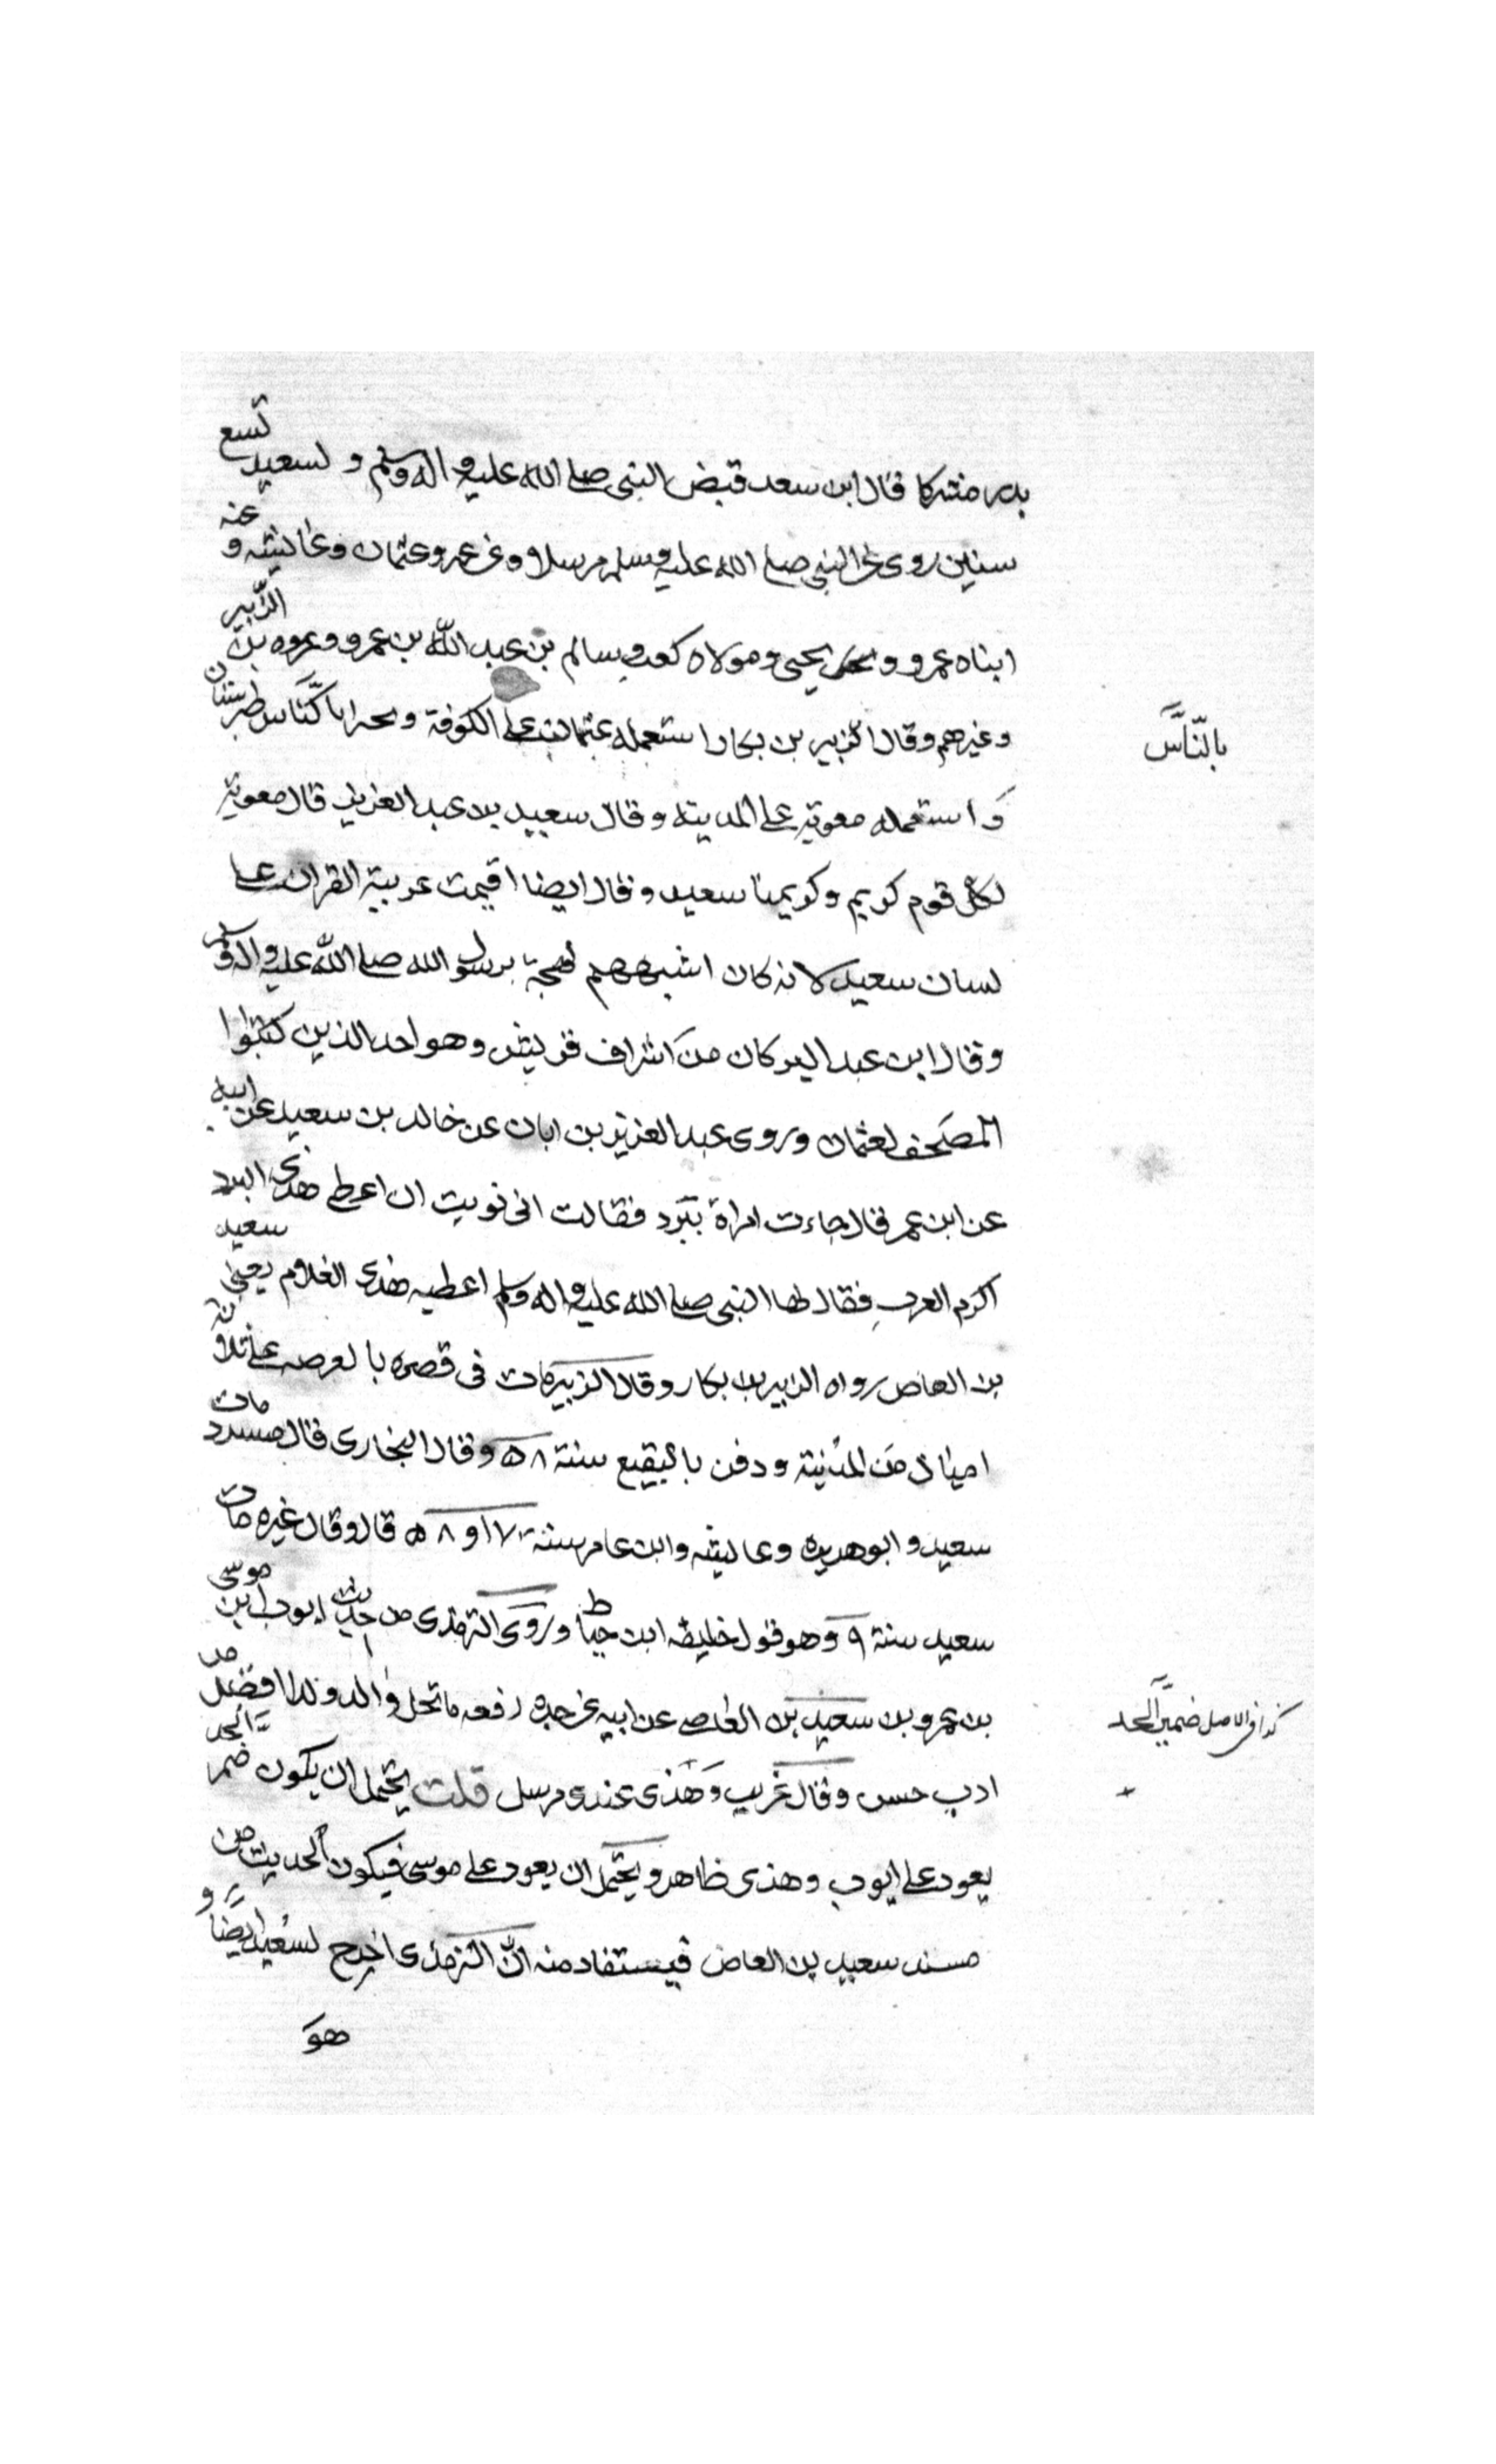 بدر مشركا قال ابن سعد قبض النبى صلى الله عليه واله وسلم و لسعيد تسع
سنين روى عن النبى صلى الله عليه وسلم مرسلا وعن عمر وعثمان وعائشه و عنه
ابناه عمرو و يحيى ومولاه كعب وسالم بن عبد الله بن عمر وعروه بن الزبير
وغيرهم وقال الزبير بن بكار استعمله عثمان على الكوفة و بالناس طبرستان
بالنّاس
و استعمله معوية على المدينه وقال سعيد بن عبد العزيز قال معوية
لكل قوم كريم وكريمنا سعيد وقال ايضا اقيمت عربية القران على
لسان سعيد لانه كان اشبههم لهجة برسول الله صلى الله عليه واله وسلم
وقال ابن عبد البر كان من اشراف قريش وهو احد الذين كتبوا
المصحف لعثمان وروى عبد العزيز بن ابان عن خالد بن سعيد عن ابيه
عن ابن عمر قال جاءت امراة ببرد فقالت انى نويت ان اعطى هذى البرد
اكرم العرب فقال لها النبى صلى الله عليه واله وسلم اعطيه هذى الغلام يعنى سعيد
بن العاص رواه الزبير بن بكار وقال الزبير مات فى قصره بالعرصه على ثلاثة
اميال من المدينة ودفن بالبقيع سنة ٥٨ وقال البخارى قال مسدد مات
سعيد و ابو هريره وعايشه وابن عامر سنة ٧ او ٥٨ قال وقال غيره مات
سعيد سنة ٩ وهو قول خليفه ابن خياط وروى الترمذى من حديث ايوب ابن موسى
بن عمرو بن سعيد بن العاص عن ابيه عن جده رفعه ما نحل والد ولدا افضل من
ادب حسن وقال غريب وهذى عندى مرسل قلت يحتمل ان يكون ضمير الجد
كذا فى الاصل ضمير الجد
يعود على ايوب وهذى ظاهر ويحتمل ان يعود على موسى فيكون الحديث من
مسند سعيد بن العاص فيستفاد منه ان الترمذى اخرج لسعيد ايضا و
هو